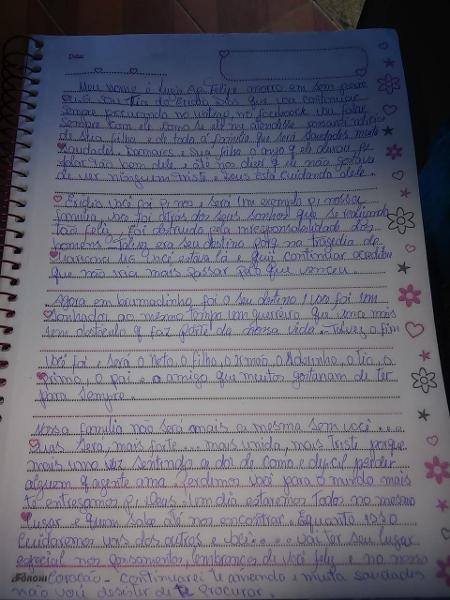 Data:
Meu nome é Lucia Ap. Felipe morro em sem peixe
sou tia do Eridio Dias que vou continuar
sempre procurando no watsap, no facebook vai falar
sempre com ele como se ele me atendesse passando noticias
de sua filha e de toda a família que será saudades muita
saudades Homones e sua filha o anjo q ele deixou pr
dar tão bem dele e até nos dizer q ele não gostava
de ver ninguem triste e Deus está cuidando dele.
Eridio você foi p/ nos e será 1 m exemplo p/ nossa
família, você foi atrás dos seus sonhos que se realizando
tão feliz, foi destruido pela irresponsabilidade dos
homens Talvez era seu destino porq na tragédia de
mariana MG você estava lá e quis continuar acreditou
que não iria mais passar pelo que venceu.
Agora em brumadinho foi o seu destino 1 você foi um
sonhador ao mesmo tempo um guerreiro que uma mais
sem obstaculo q faz parte da nossa vida - Talvez o fim
Você foi e será o neto, o filho, o irmão, o sobrinho, o tio, o
primo, o pai e o amigo que muitos gostariam de ter
para sempre.
Nossa família não será amais a mesma sem você...
mas será, mais forte... mais unida, mais triste porque
mais uma vez sentindo a dor de como é dificil perder
alguem q agente ama perdemos você para o mundo mais
te entregamos p/ Deus. Um dia estaremos todos no mesmo
lugar e quem sabe até nos encontrar. Equanto isso
cuidaremos uns dos outros e você... vai ter seu lugar
especial nos pensamentos, lembranças de você feliz e no nosso
coração - continuarei te amando e muita saudades
não vou desistir de te procurar.